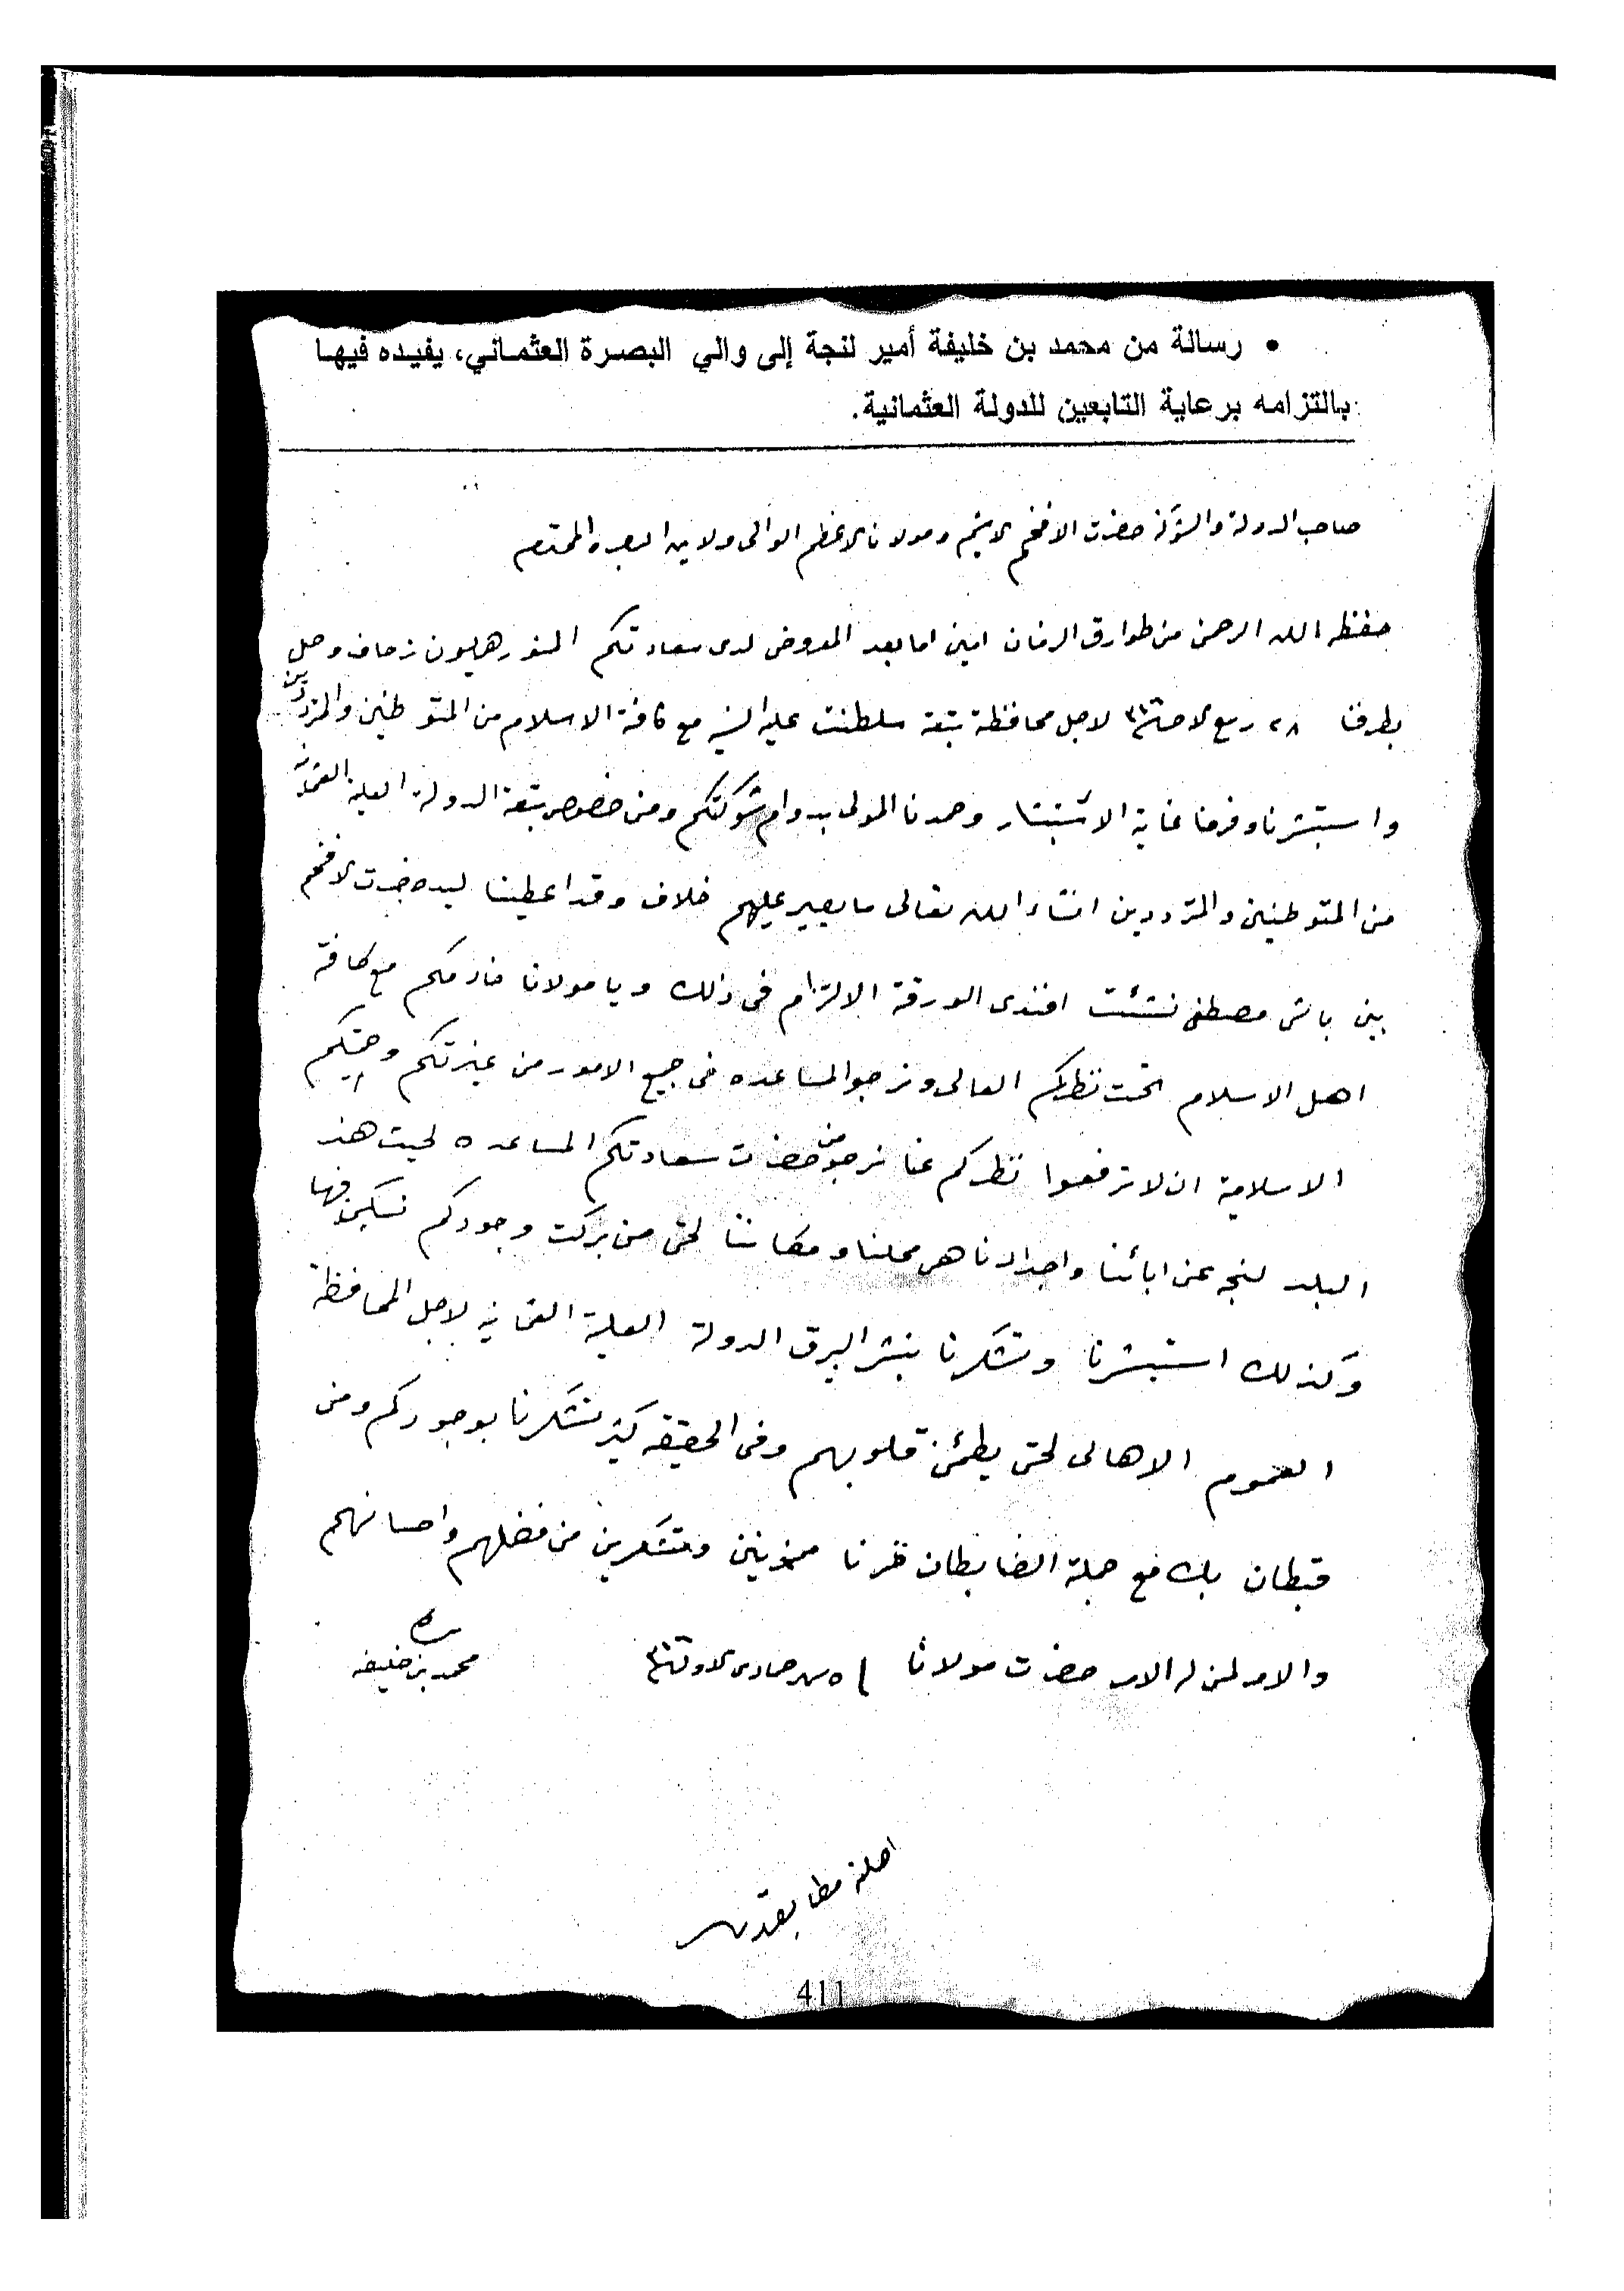 • رسالة من محمد بن خليفة أمير لنجة إلى والي البصرة العثماني، يفيده فيها
بالتزامه برعاية التابعين للدولة العثمانية.
صاحب الدولة والشوكة حضرت الافخم ومولانا الاعظم الوالى ولاية البصره المحترم
حفظه الله الرحمن من طوارق الزمان امين اما بعد المعروض لدى سعادتكم وصل
بطرفنا ٢٨ ربيع لاجل محافظة تبعة سلطنت عليه السنيه مع كافة الاسلام من المتوطنين والمترددين
واستبشرنا وفرحنا غاية الاستبشار وحمدنا المولى بدوام شوكتكم ومن خصوص تبعة الدولة العلية العثمانية
من المتوطنين والمترددين انشاء الله تعالى ما يصير عليهم خلاف وقد اعطينا ليد حضرت الافخم
بين باشى مصطفى نشئت افندى الورقة الالتزام فى ذلك ويا مولانا خادمكم مع كافة
اهل الاسلام تحت نظركم العالى ونرجو المساعده فى جميع الامور من غيرتكم وحميتكم
الاسلامية ان لا ترفعوا نظركم عنا نرجو من حضرت سعادتكم المساعده لحيث هذ
البلد لنجه عن ابائنا واجدادنا هى محلنا ومكاننا لحتى من بركت وجودكم نسكن فيها
وكذلك استبشرنا وتشكرنا بنشر البيرق الدولة العلية العثمانيه لاجل المحافظة
العموم الاهالى لحتى يطمئن قلوبهم وفى الحقيقه كثير تشكرنا بوجودكم ومن
قبطان بك مع جملة الضابطان صرنا ممنونين ومتشكرين من فضلهم واحسانهم
والامر لمن له الامر حضرت مولانا جمادى
محمد بن خليفه
اصلنه مطابقدر
411